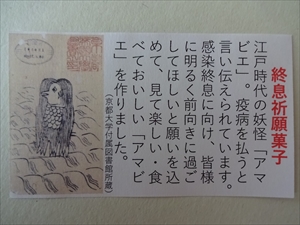 終息祈願菓子
江戸時代の妖怪「アマ
ビエ」。疫病を払うと
言い伝えられています。
感染終息に向け、皆様
に明るく前向きに過ご
してほしいと願いを込
めて、見て楽しい・食
べておいしい「アマビ
エ」を作りました。
(京都大学付属図書館所蔵)